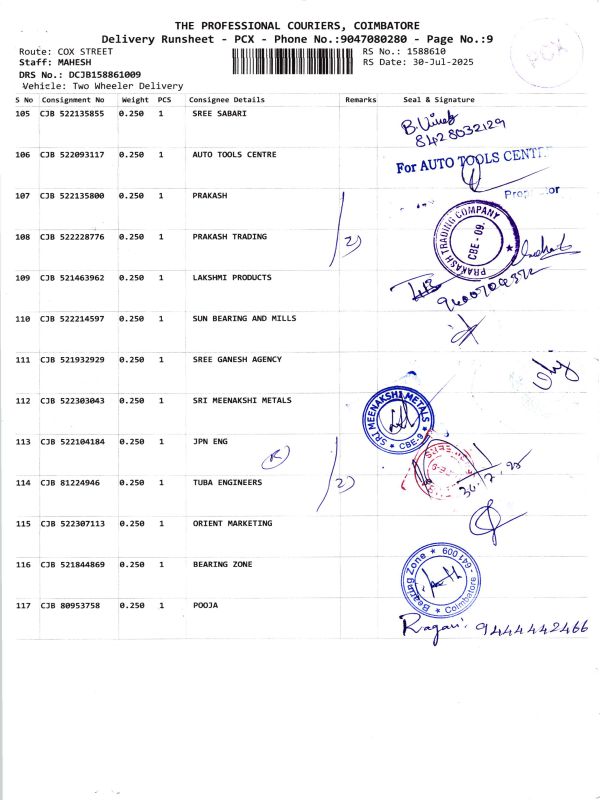 THE PROFESSIONAL COURIERS, COIMBATORE
Delivery Runsheet - PCX - Phone No.:9047080280 - Page No.:9
Route: COX STREET
RS No.: 1588610
Staff: MAHESH
RS Date: 30-Jul-2025
DRS No.: DCJB158861009
Vehicle: Two Wheeler Delivery
PCX
S No Consignment No Weight PCS Consignee Details Remarks Seal & Signature
105 CJB 522135855 0.250 1 SREE SABARI
8428032129
106 CJB 522093117 0.250 1 AUTO TOOLS CENTRE
For AUTO TOOLS CENT
107 CJB 522135800 0.250 1 PRAKASH
108 CJB 522228776 0.250 1 PRAKASH TRADING 2)
PRAKASH TRADING COMPANY
CBE - 09.
109 CJB 521463962 0.250 1 LAKSHMI PRODUCTS
110 CJB 522214597 0.250 1 SUN BEARING AND MILLS
111 CJB 521932929 0.250 1 SREE GANESH AGENCY
112 CJB 522303043 0.250 1 SRI MEENAKSHI METALS
SRI MEENAKSHI METALS
CBE-9
113 CJB 522104184 0.250 1 JPN ENG
114 CJB 81224946 0.250 1 TUBA ENGINEERS 2)
115 CJB 522307113 0.250 1 ORIENT MARKETING
116 CJB 521844869 0.250 1 BEARING ZONE
Bearing Zone
Coimbatore - 641 009
117 CJB 80953758 0.250 1 POOJA
Ragavi. 9444442466